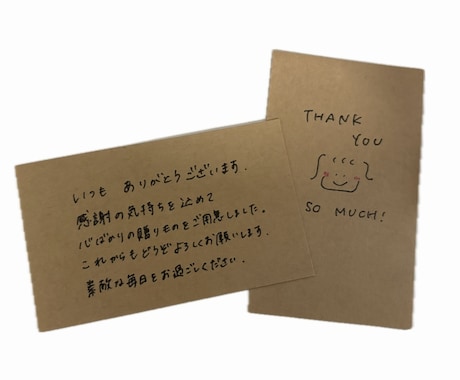 いつも ありがとうございます.
感謝の気持ちを込めて
心ばかりの贈りものをご用意しました。
これからもどうぞよろしくお願いします.
素敵な毎日をお過ごしください.
THANK
YOU
SO MUCH!